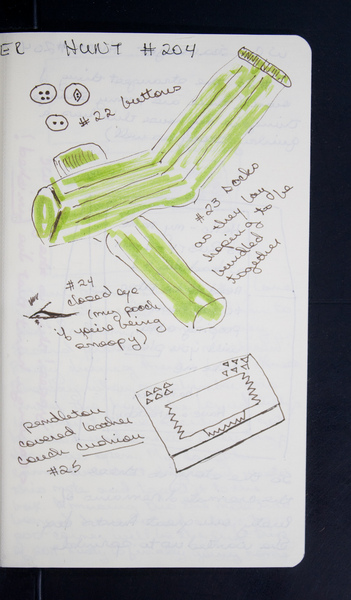 ER HUNT #204
#22 buttons
#23 socks
as they lay
hoping to be
bundled
together
#24
closed eye
(my pooch
if you're being
snoopy)
pendleton
covered leather
couch cushion
#25